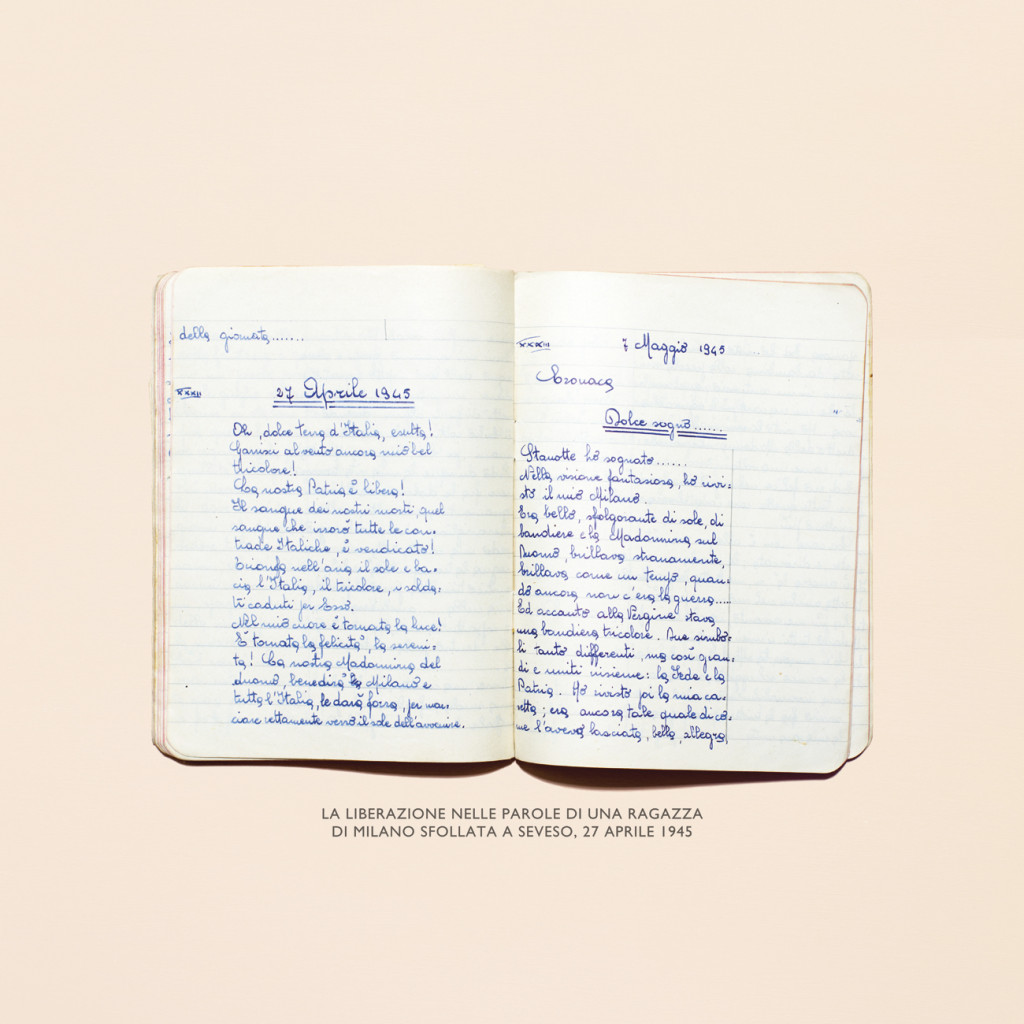 della giornata.......
XXXII
27 Aprile 1945
Oh, dolce terra d'Italia, esulta!
Garrisci al vento ancora mio bel
tricolore!
La nostra Patria è libera!
Il sangue dei nostri morti, quel
sangue che irrorò tutte le con-
trade Italiche, è vendicato!
Trionfa nell'aria il sole e ba-
cia l'Italia, il tricolore, i solda-
ti caduti per Essa.
Nel mio cuore è tornata la luce!
È tornata la felicità, la sereni-
tà! La nostra Madonnina del
duomo, benedirà Milano e
tutta l'Italia, le darà forza, per mar-
ciare rettamente verso il sole dell'avvenire.
XXXIII
7 Maggio 1945
Cronaca
Dolce sogno......
Stanotte ho sognato.......
Nella visione fantasiosa, ho rivi-
sto il mio Milano.
Era bello, sfolgorante di sole, di
bandiere e la Madonnina sul
Duomo, brillava stranamente,
brillava come un tempo, quan-
do ancora non c'era la guerra.....
Ed accanto alla Vergine stava
una bandiera tricolore. Due simbo-
li tanto differenti, ma così gran-
di e uniti insieme: la Fede e la
Patria. Ho rivisto poi la mia ca-
setta; era ancora tale quale di co-
me l'avevo lasciata, bella, allegra,
LA LIBERAZIONE NELLE PAROLE DI UNA RAGAZZA
DI MILANO SFOLLATA A SEVESO, 27 APRILE 1945